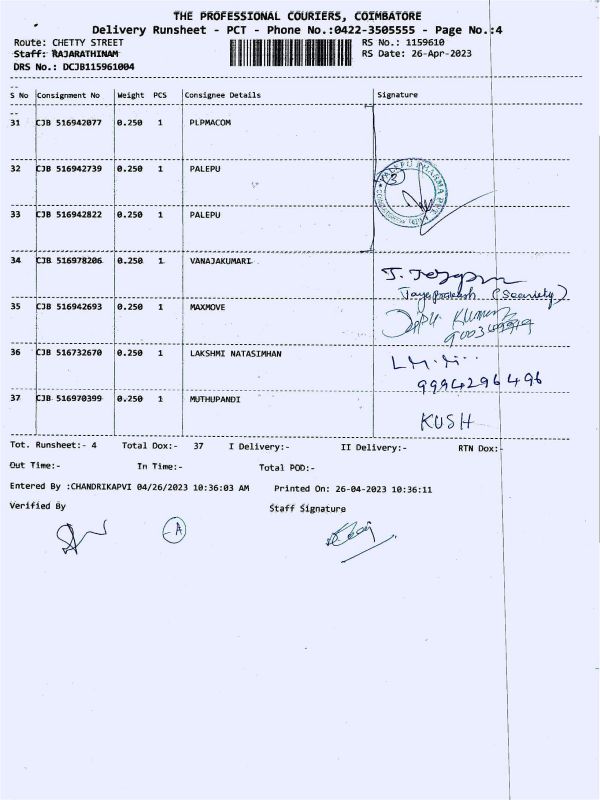 THE PROFESSIONAL COURIERS, COIMBATORE
Delivery Runsheet - PCT - Phone No.:0422-3505555 - Page No.:4
Route: CHETTY STREET RS No.: 1159610
Staff: RAJARATHINAM RS Date: 26-Apr-2023
DRS No.: DCJB115961004
S No Consignment No Weight PCS Consignee Details Signature
31 CJB 516942077 0.250 1 PLPMACOM
32 CJB 516942739 0.250 1 PALEPU
33 CJB 516942822 0.250 1 PALEPU
34 CJB 516978206 0.250 1 VANAJAKUMARI
Jayaprakash (Security)
35 CJB 516942693 0.250 1 MAXMOVE
36 CJB 516732670 0.250 1 LAKSHMI NATASIMHAN
9994296496
37 CJB 516970399 0.250 1 MUTHUPANDI
KUSH
Tot. Runsheet:- 4 Total Dox:- 37 I Delivery:- II Delivery:- RTN Dox:-
Out Time:- In Time:- Total POD:-
Entered By :CHANDRIKAPVI 04/26/2023 10:36:03 AM Printed On: 26-04-2023 10:36:11
Verified By Staff Signature
A